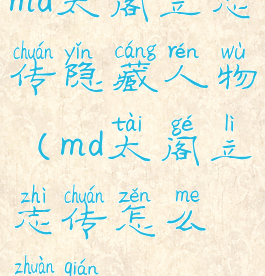 md太阁立志
chuán yǐn cáng rén wù
传隐藏人物
tài gé lì
(md太阁立
zhì chuán zěn me
志传怎么
zhuàn qián